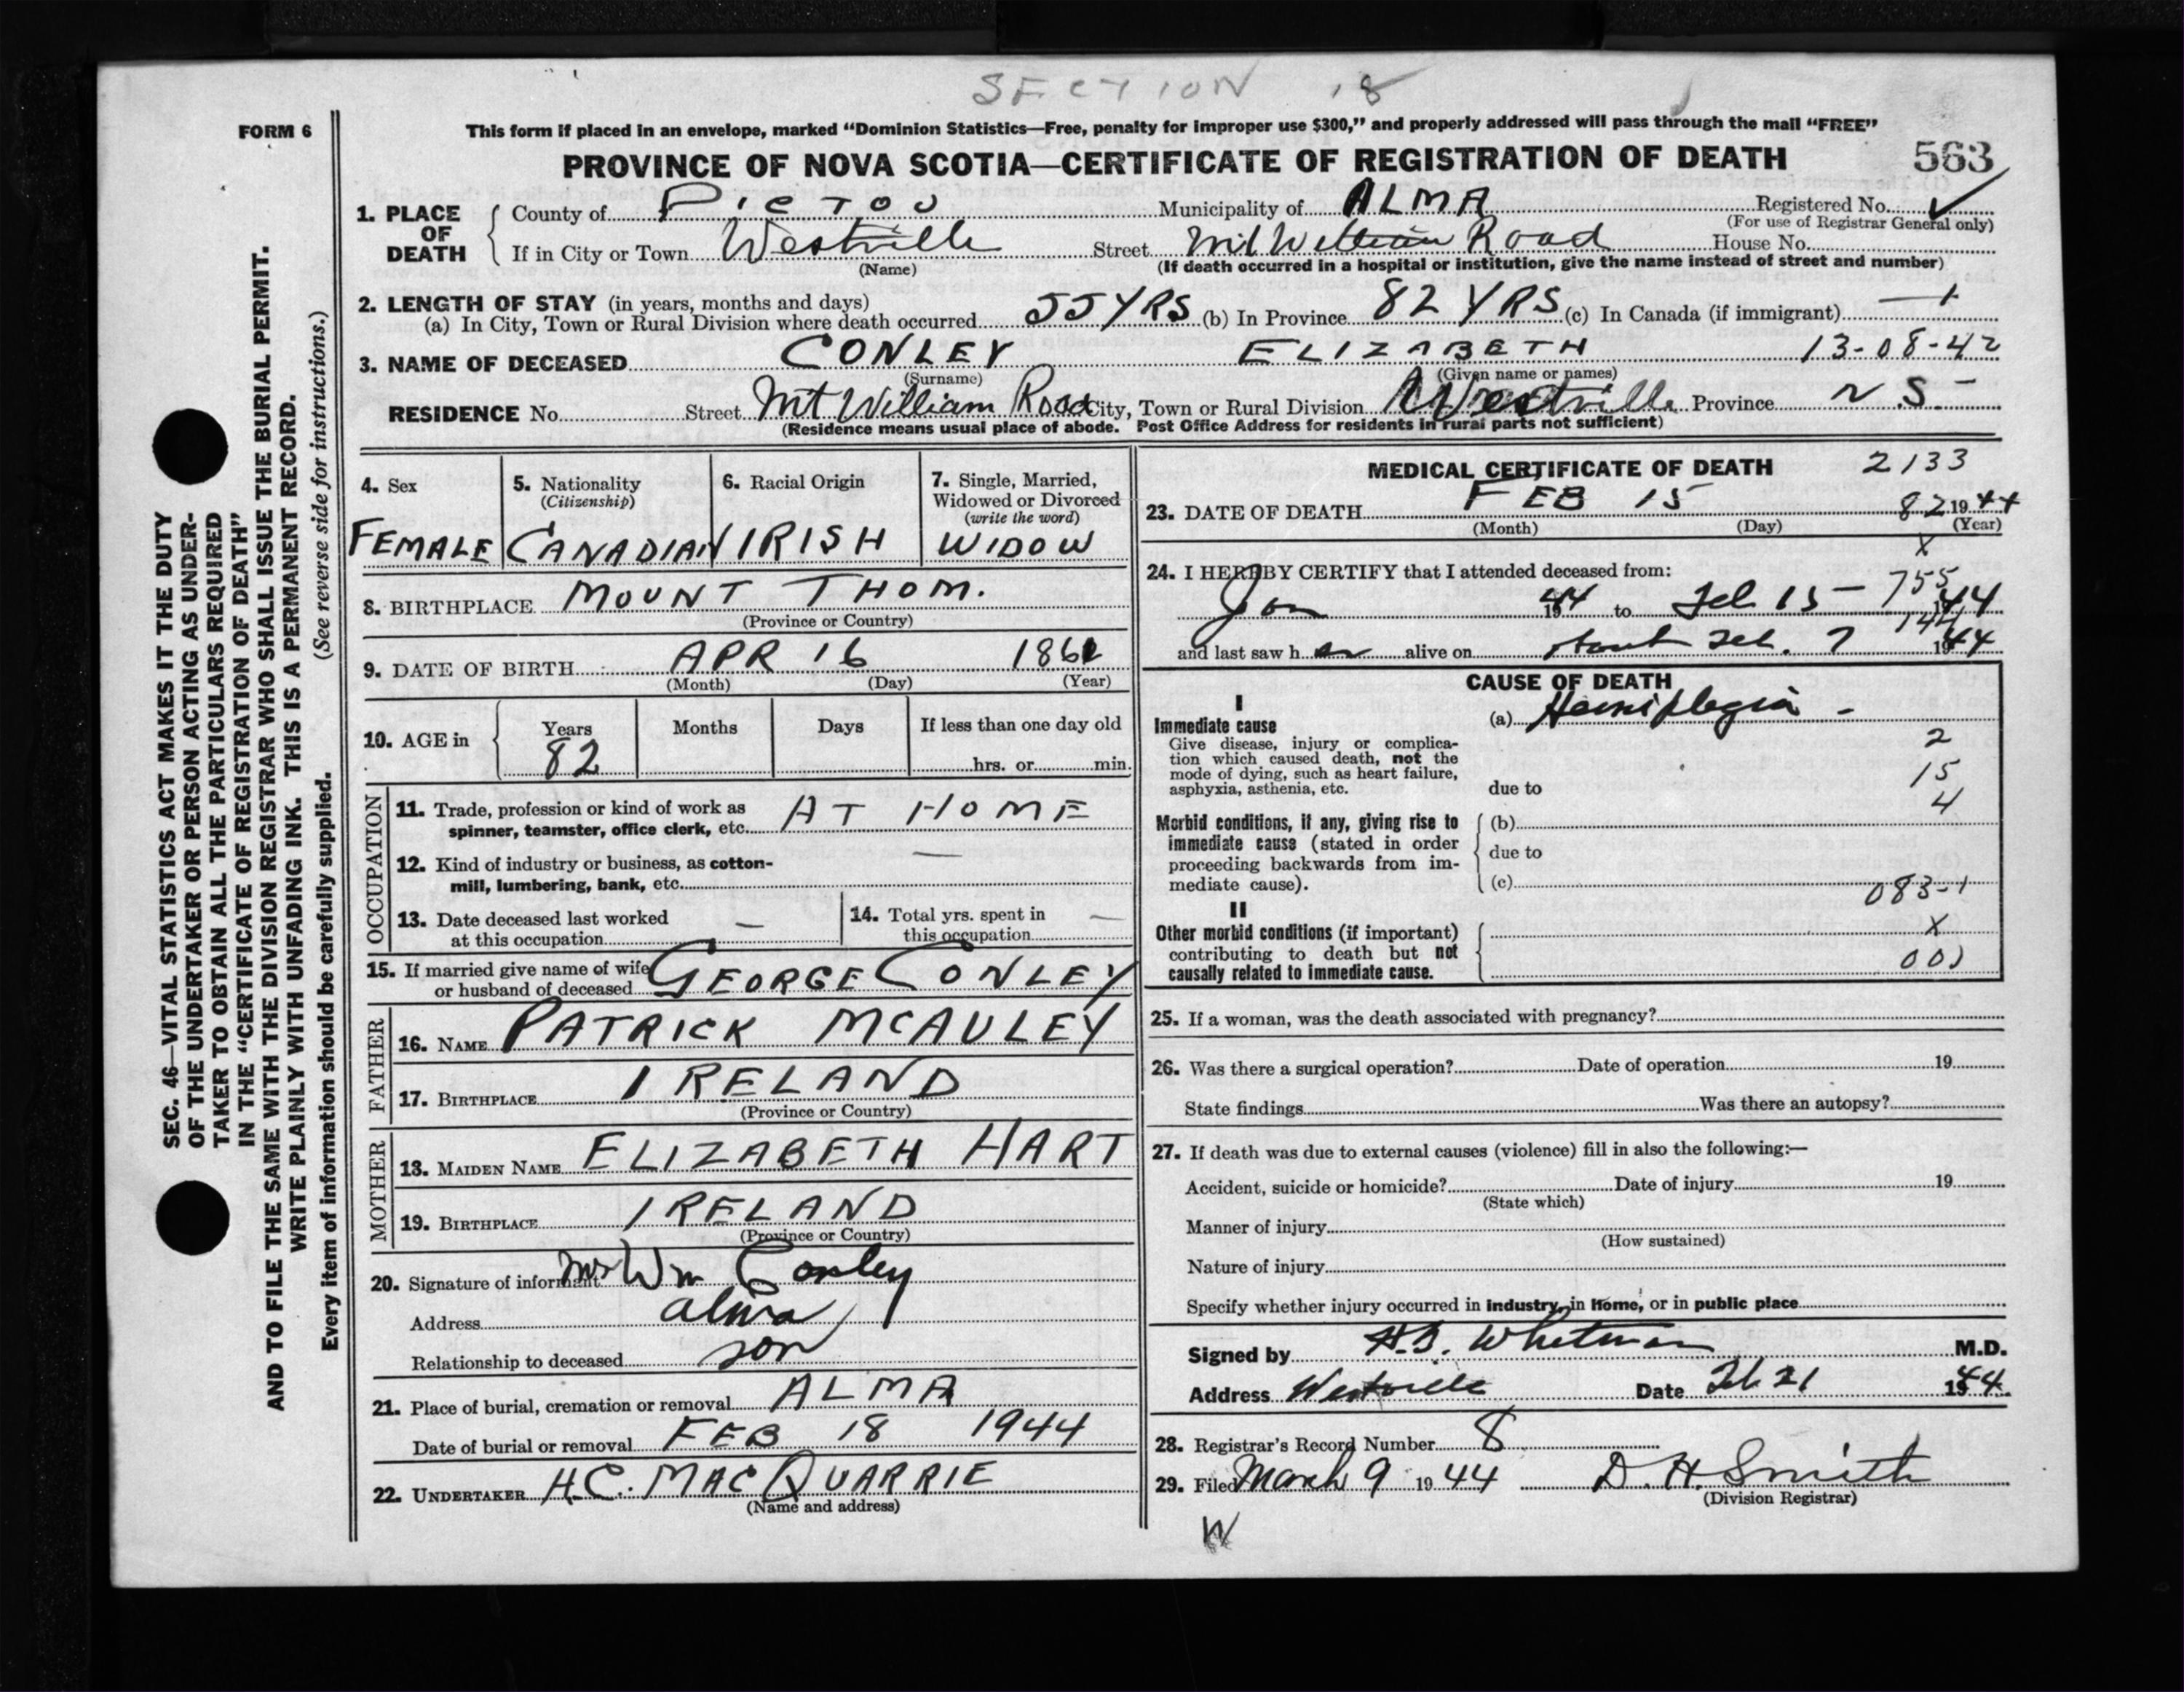 SECTION 18
FORM 6
This form if placed in an envelope, marked “Dominion Statistics—Free, penalty for improper use $300,” and properly addressed will pass through the mail “FREE”
PROVINCE OF NOVA SCOTIA—CERTIFICATE OF REGISTRATION OF DEATH 563
1. PLACE OF DEATH
County of PICTOU Municipality of ALMA Registered No. ✓
(For use of Registrar General only)
If in City or Town Westville Street Mt William Road House No.
(Name) (If death occurred in a hospital or institution, give the name instead of street and number)
2. LENGTH OF STAY (in years, months and days)
(a) In City, Town or Rural Division where death occurred 55 YRS (b) In Province 82 YRS (c) In Canada (if immigrant) —
3. NAME OF DECEASED CONLEY ELIZABETH 13-08-42
(Surname) (Given name or names)
RESIDENCE No. Street Mt William Road City, Town or Rural Division Westville Province N.S.
(Residence means usual place of abode. Post Office Address for residents in rural parts not sufficient)
4. Sex
FEMALE
5. Nationality
(Citizenship)
CANADIAN
6. Racial Origin
IRISH
7. Single, Married,
Widowed or Divorced
(write the word)
WIDOW
8. BIRTHPLACE MOUNT THOM.
(Province or Country)
9. DATE OF BIRTH APR 16 186
(Month) (Day) (Year)
10. AGE in
Years Months Days If less than one day old
82 hrs. or min.
OCCUPATION
11. Trade, profession or kind of work as
spinner, teamster, office clerk, etc. AT HOME
12. Kind of industry or business, as cotton-
mill, lumbering, bank, etc. —
13. Date deceased last worked
at this occupation —
14. Total yrs. spent in
this occupation —
15. If married give name of wife
or husband of deceased GEORGE CONLEY
FATHER
16. NAME PATRICK MCAULEY
17. BIRTHPLACE IRELAND
(Province or Country)
MOTHER
18. MAIDEN NAME ELIZABETH HART
19. BIRTHPLACE IRELAND
(Province or Country)
20. Signature of informant Mrs Wm Conley
Address Alma
Relationship to deceased son
21. Place of burial, cremation or removal ALMA
Date of burial or removal FEB 18 1944
22. UNDERTAKER H.C. MACQUARRIE
(Name and address)
MEDICAL CERTIFICATE OF DEATH 2133
23. DATE OF DEATH FEB 15 82 1944
(Month) (Day) (Year)
X
24. I HEREBY CERTIFY that I attended deceased from:
755
Jan 1944 to Feb 15 – 1944
144
and last saw h er alive on about Feb. 7 1944
CAUSE OF DEATH
I
Immediate cause
Give disease, injury or complica-
tion which caused death, not the
mode of dying, such as heart failure,
asphyxia, asthenia, etc.
(a) Hemiplegia -
2
15
4
due to
Morbid conditions, if any, giving rise to
immediate cause (stated in order
proceeding backwards from im-
mediate cause).
(b)
due to
(c)
083-1
II
Other morbid conditions (if important)
contributing to death but not
causally related to immediate cause.
X
00
25. If a woman, was the death associated with pregnancy?
26. Was there a surgical operation? Date of operation 19
State findings Was there an autopsy?
27. If death was due to external causes (violence) fill in also the following:—
Accident, suicide or homicide? Date of injury 19
(State which)
Manner of injury
(How sustained)
Nature of injury
Specify whether injury occurred in industry, in home, or in public place
Signed by H.B. Whitman M.D.
Address Westville Date Feb 21 1944
28. Registrar's Record Number 8
29. Filed March 9 1944 D. H. Smith
(Division Registrar)
W
SEC. 46—VITAL STATISTICS ACT MAKES IT THE DUTY
OF THE UNDERTAKER OR PERSON ACTING AS UNDER-
TAKER TO OBTAIN ALL THE PARTICULARS REQUIRED
IN THE “CERTIFICATE OF REGISTRATION OF DEATH”
AND TO FILE THE SAME WITH THE DIVISION REGISTRAR WHO SHALL ISSUE THE BURIAL PERMIT.
WRITE PLAINLY WITH UNFADING INK. THIS IS A PERMANENT RECORD.
Every item of information should be carefully supplied. (See reverse side for instructions.)